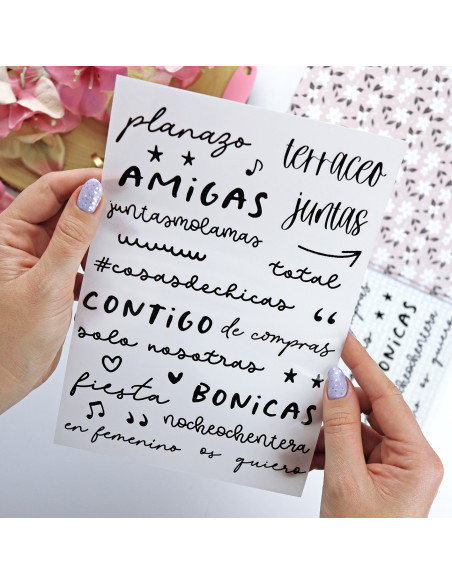 planazo
terraceo
AMiGAS
juntas
juntasmolamas
total
#cosasdechicas
CONTiGO de compras
solo nosotras
fiesta BONiCAS
nocheochentera
en femenino os quiero
BONiCAS
nocheochentera
os quiero